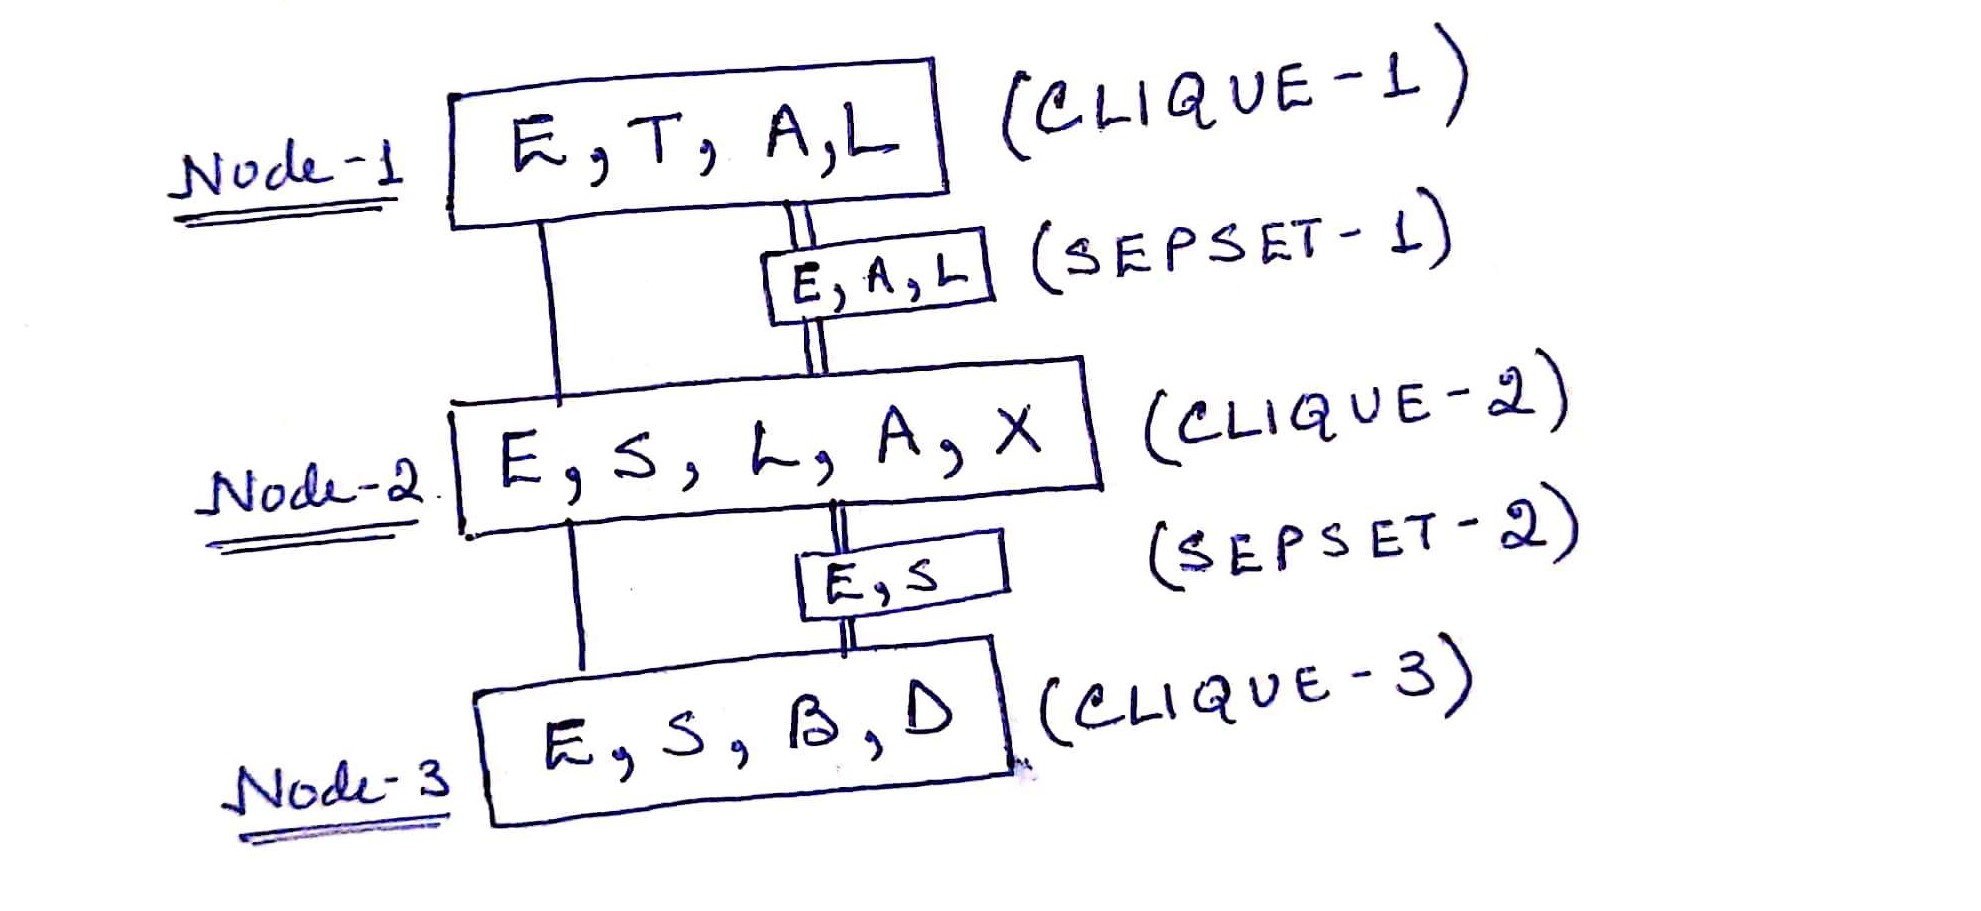 Node-1 E, T, A, L (CLIQUE-1)
E, A, L (SEPSET-1)
Node-2 E, S, L, A, X (CLIQUE-2)
E, S (SEPSET-2)
Node-3 E, S, B, D (CLIQUE-3)